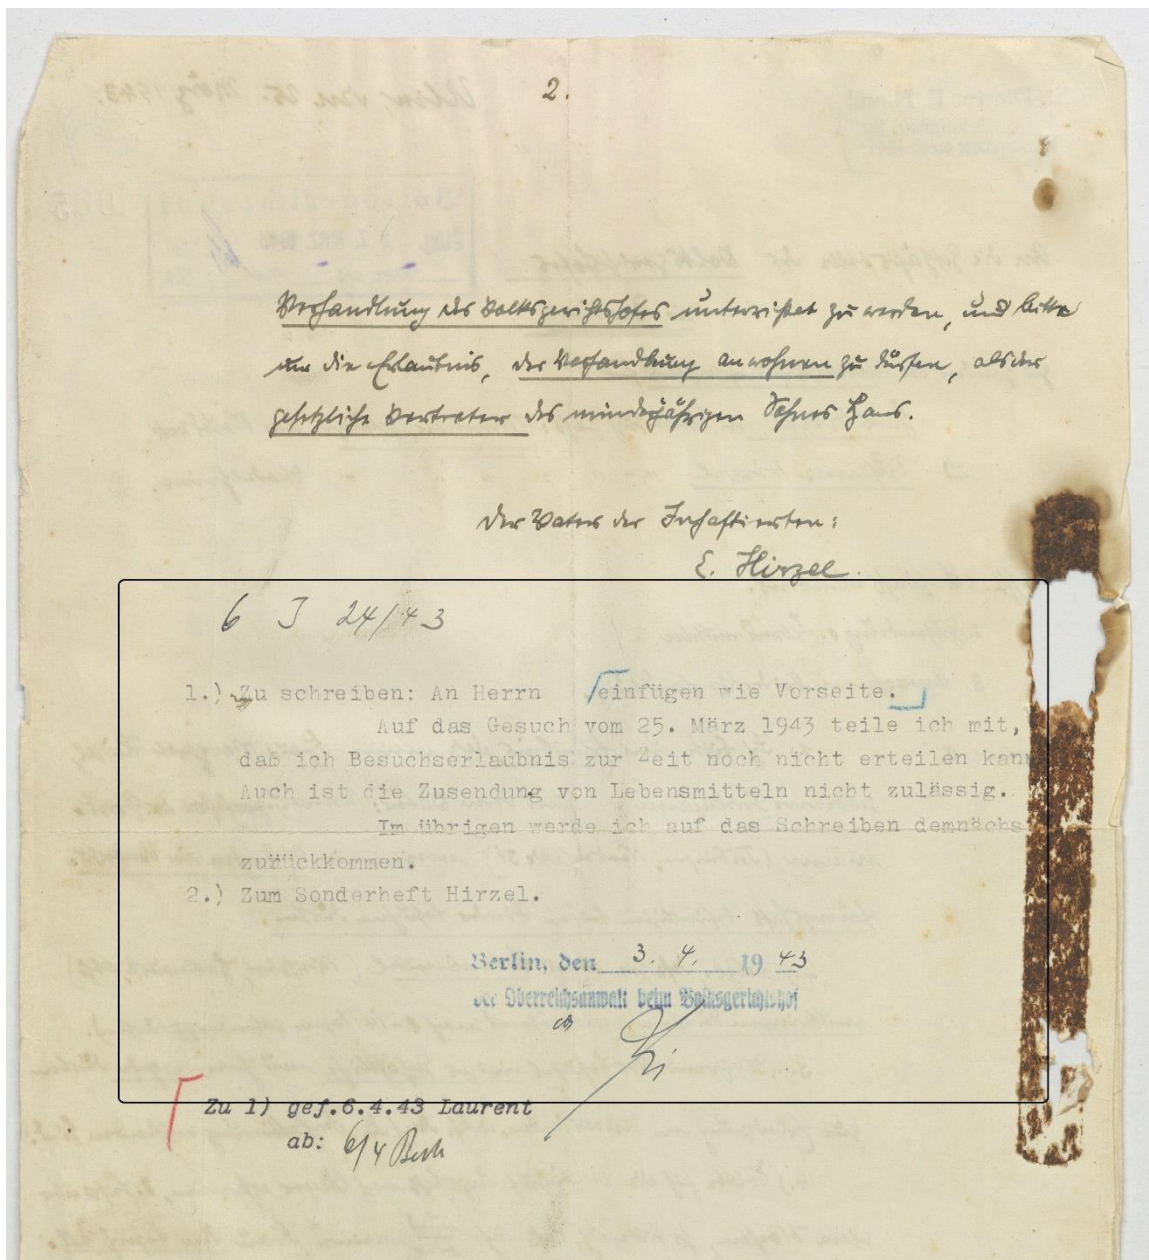 2.
Verhandlung des Volksgerichtshofes unterrichtet zu werden, und bitte
um die Erlaubnis, der Verhandlung anwohnen zu dürfen, als der
gesetzliche Vertreter des minderjährigen Sohnes Hans.
Der Vater der Inhaftierten:
E. Hirzel.
6 J 24/43
1.) Zu schreiben: An Herrn einfügen wie Vorseite.
Auf das Gesuch vom 25. März 1943 teile ich mit,
daß ich Besuchserlaubnis zur Zeit noch nicht erteilen kann
Auch ist die Zusendung von Lebensmitteln nicht zulässig.
Im übrigen werde ich auf das Schreiben demnächs
zurückkommen.
2.) Zum Sonderheft Hirzel.
Berlin, den 3. 4. 1943
Der Oberreichsanwalt beim Volksgerichtshof
Zu 1) gef.6.4.43 Laurent
ab: 6/4